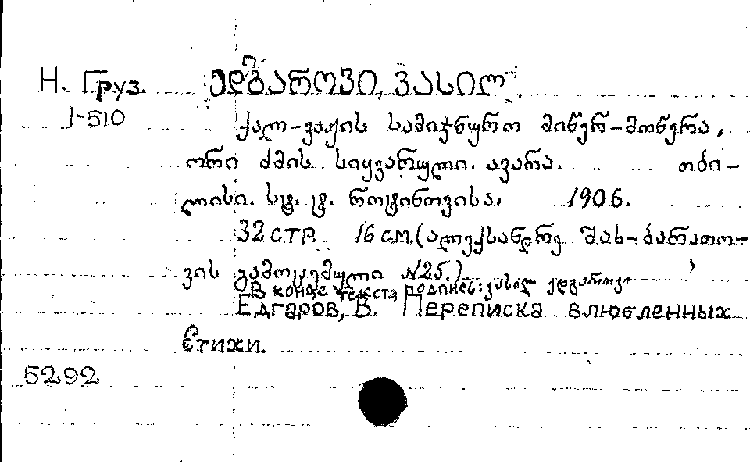 Н. Груз. ედგაროვი, ვასილ
1-510
ქალ-ვაჟის სამიჯნურო მიწერ-მოწერა,
ორი ძმის სიყვარული. ავარა. თბი-
ლისი. სტ. ტ. როტინოვისა, 1906.
32 стр. 16 см. (ალექსანდრე შახ-ბარათო-
ვის გამოცემული №25.)
В конце текста подпись: ვასილ ედგაროვი
Едгаров, В. Переписка влюбленных
Стихи.
5292